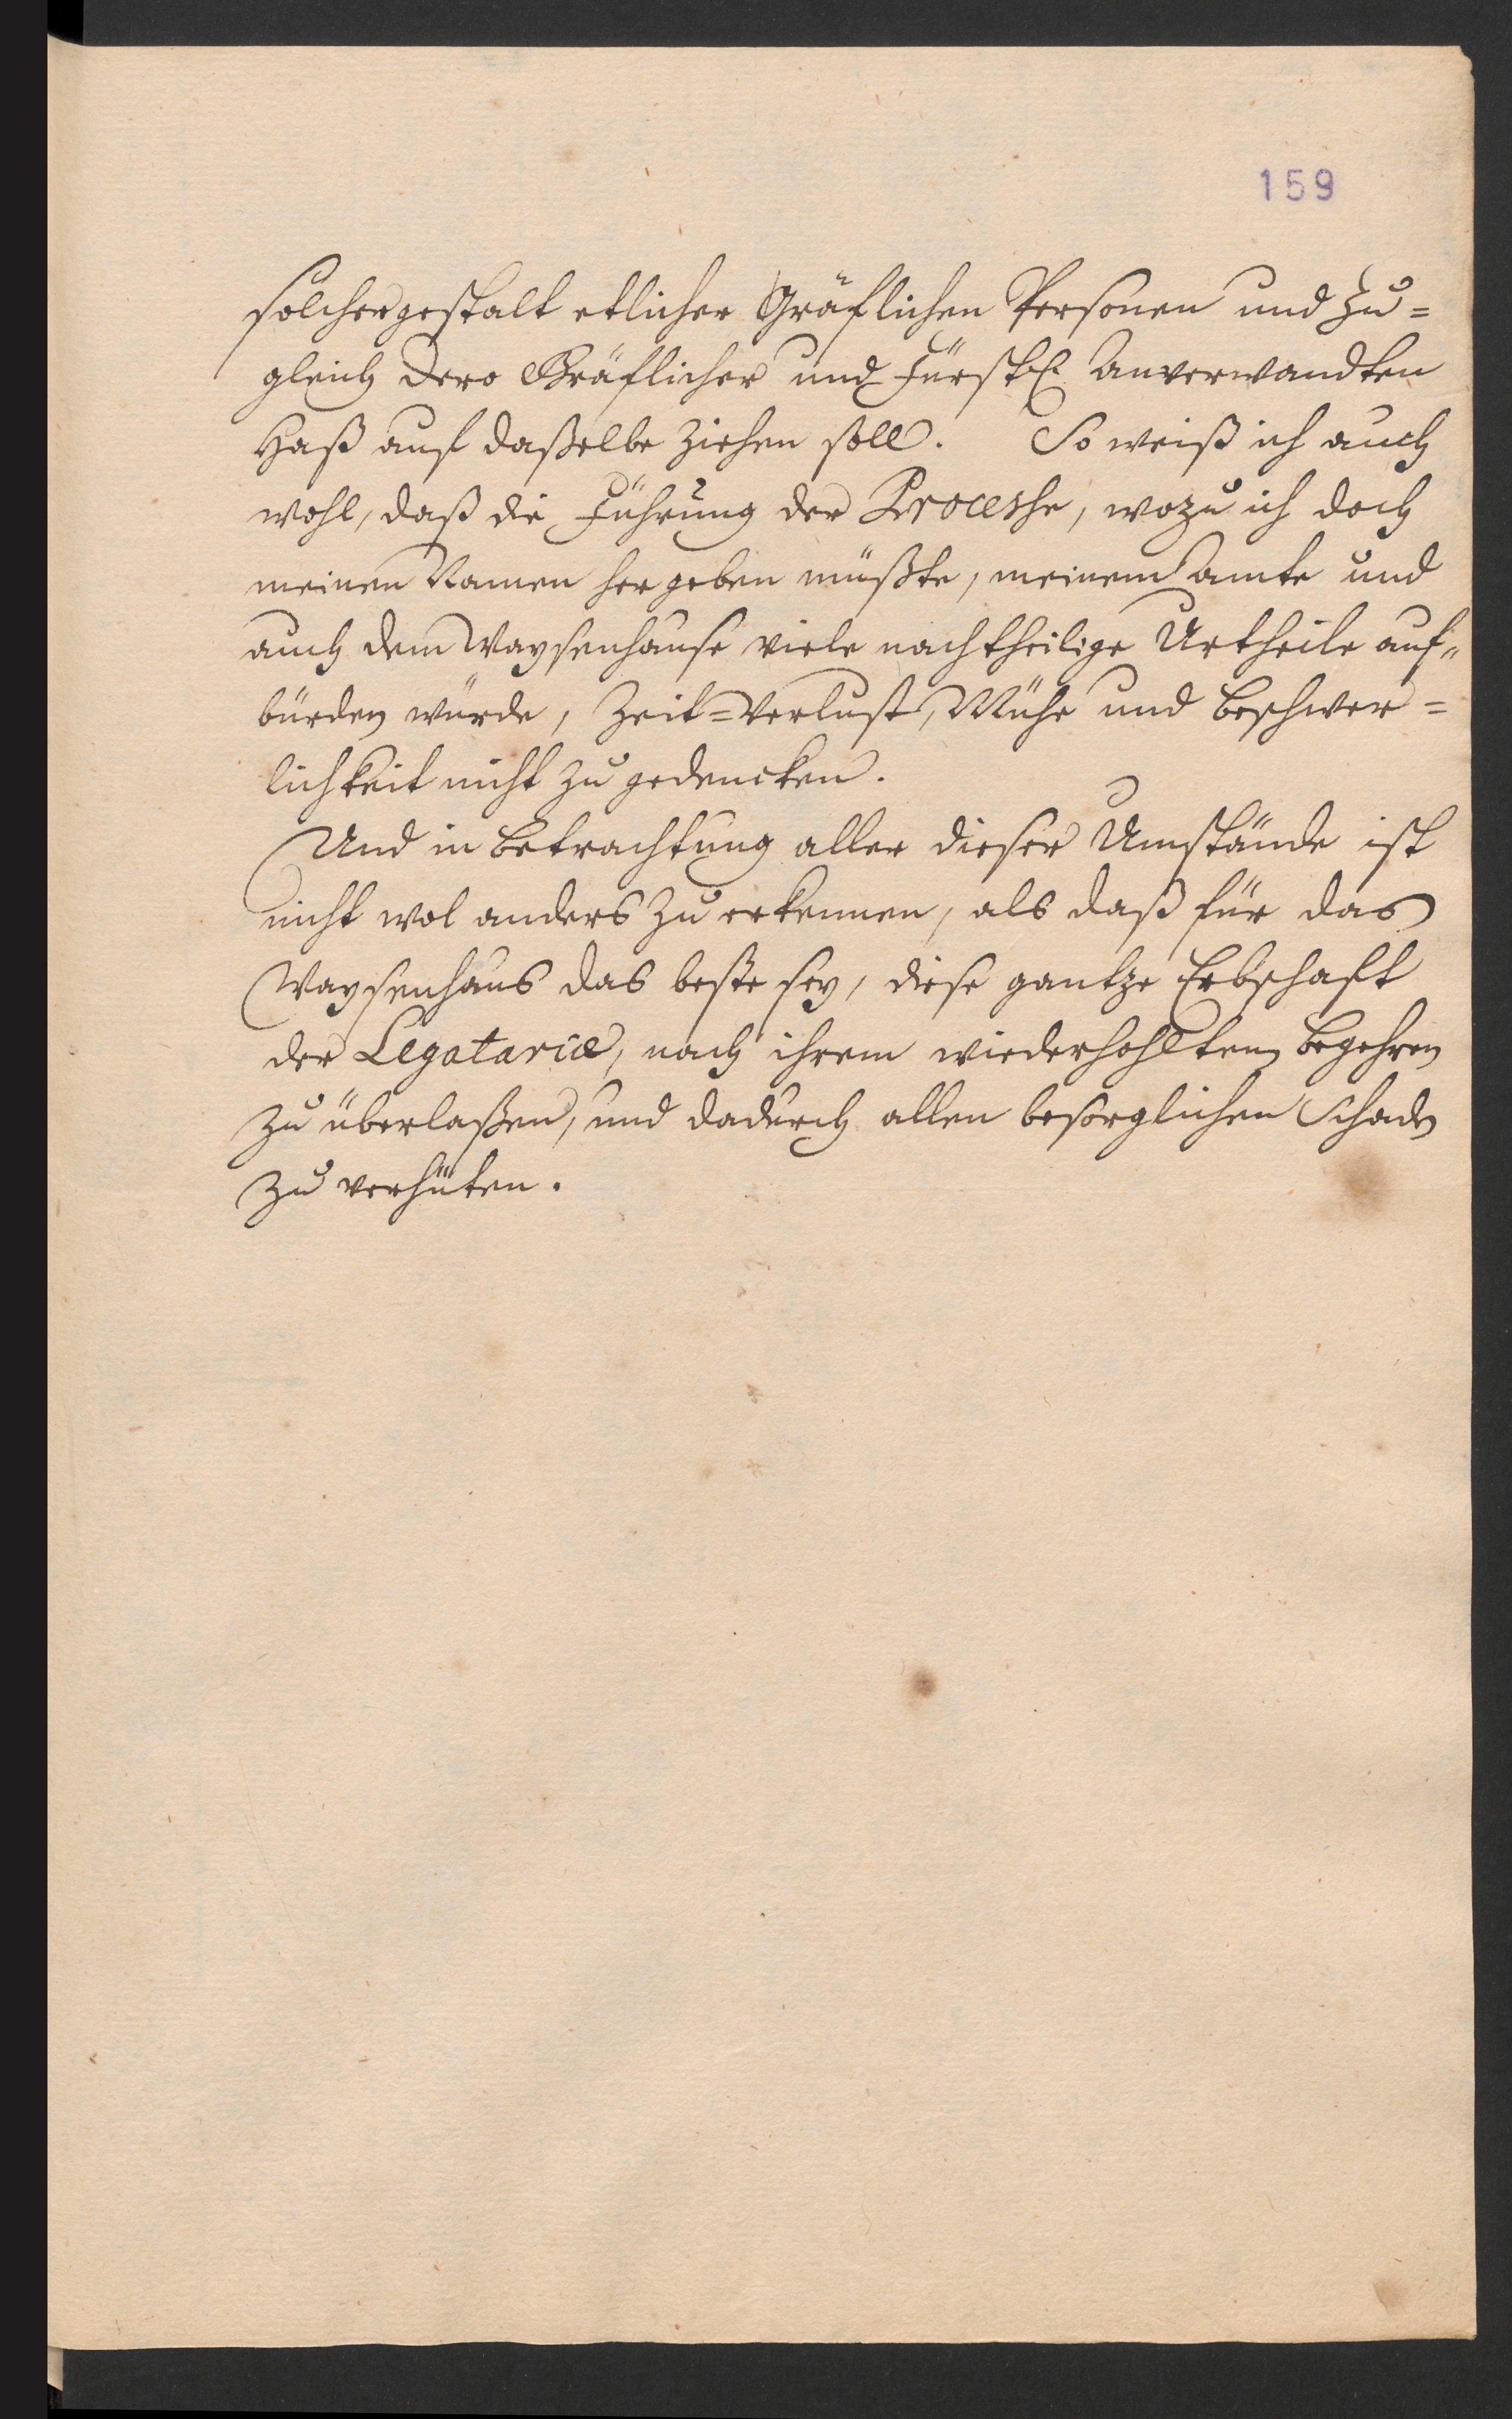 159
solchergestalt etlicher Gräflichen Personen und zu=
gleich dero Gräflicher und Fürstl. Anverwandten
Haß auf daßelbe ziehen soll. So weiß ich auch
wohl, daß die Führung der Processe, wozu ich doch
meinen Namen her geben müßte, meinem Amte und
auch dem Waysenhause viele nachtheilige Urtheile auf„
bürden würde, Zeit=Verlust, Mühe und Beschwer=
lichkeit nicht zu gedencken.
Und in Betrachtung aller dieser Umstände ist
nicht wol anders zu erkennen, als daß für das
Waysenhaus das beste sey, diese gantze Erbschaft
der Legatariæ, nach ihrem wiederhohlten Begehren
zu überlaßen, und dadurch allen besorglichen Schaden
zu verhüten.